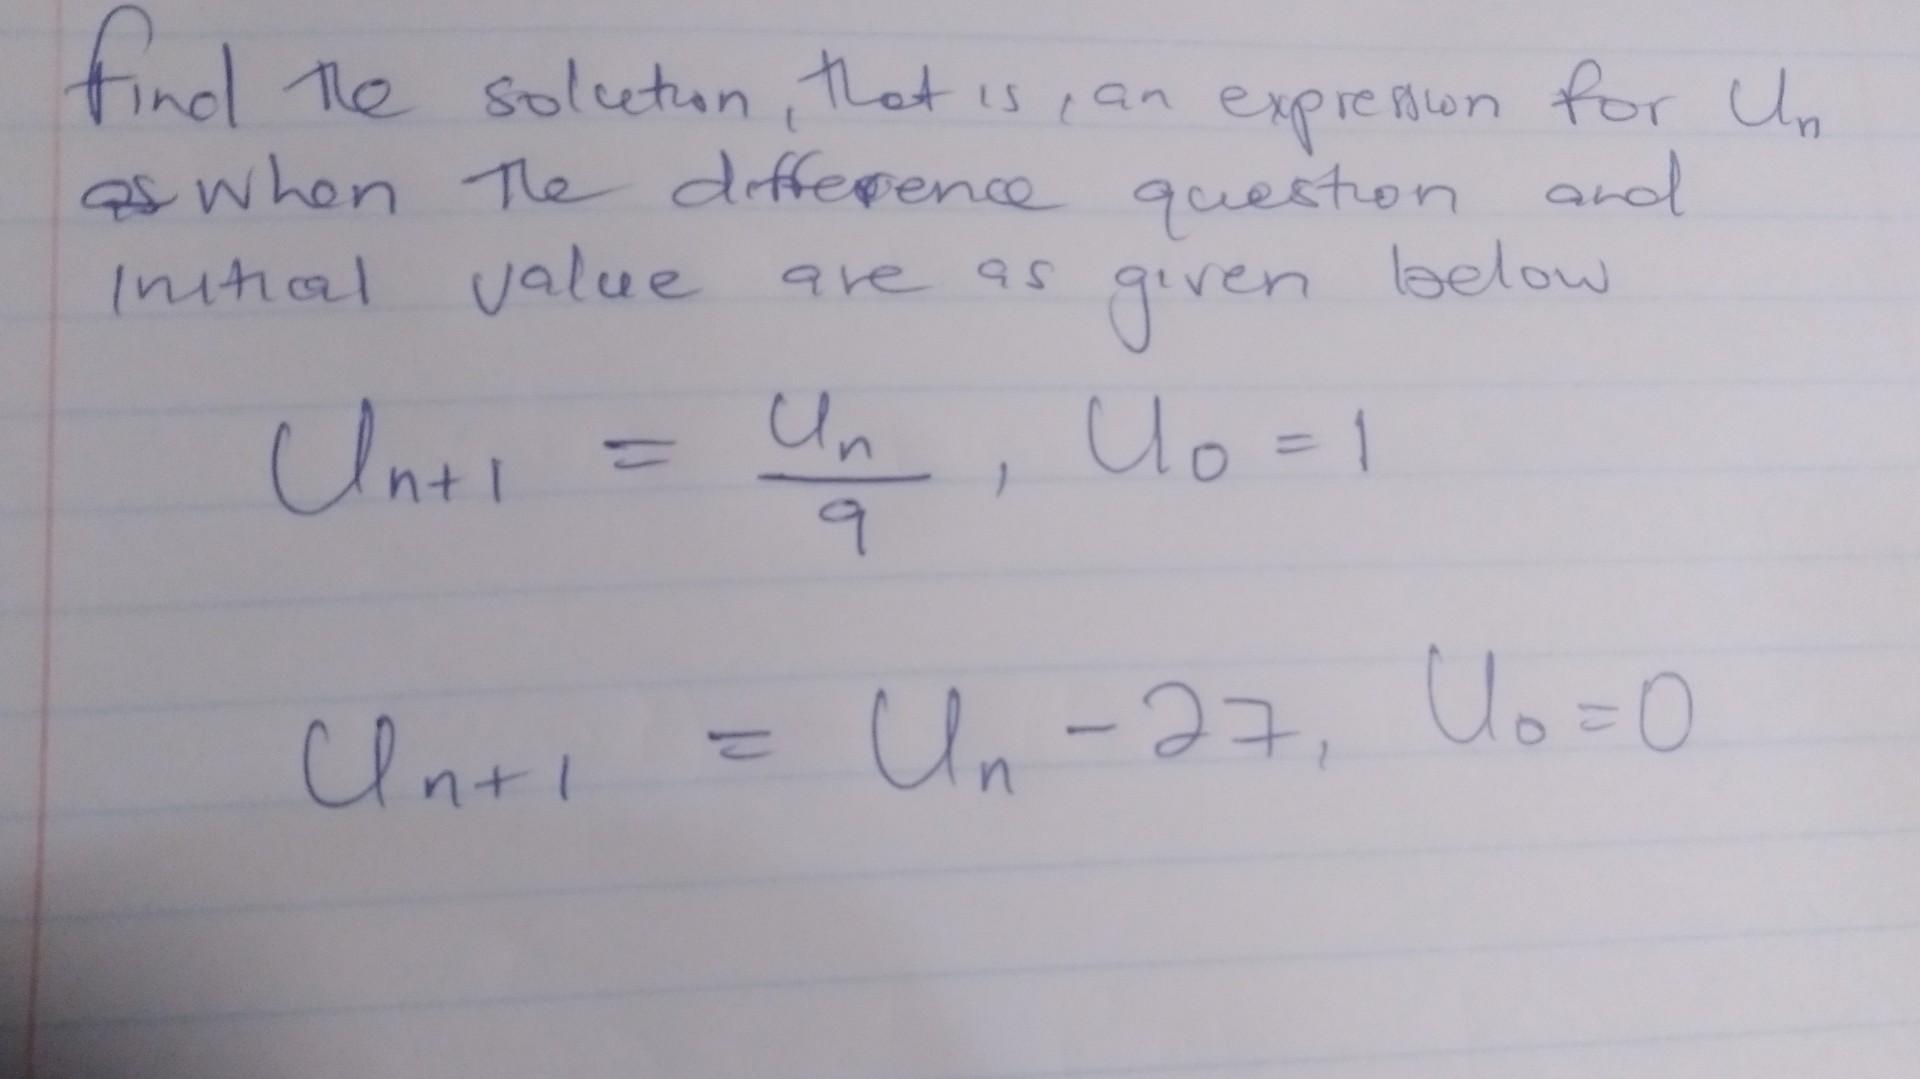 find the solution, that is, an expression for Un
as when the difference question and
initial value are as given below
Un+1 = Un/9, U0 = 1
Un+1 = Un - 27, U0 = 0